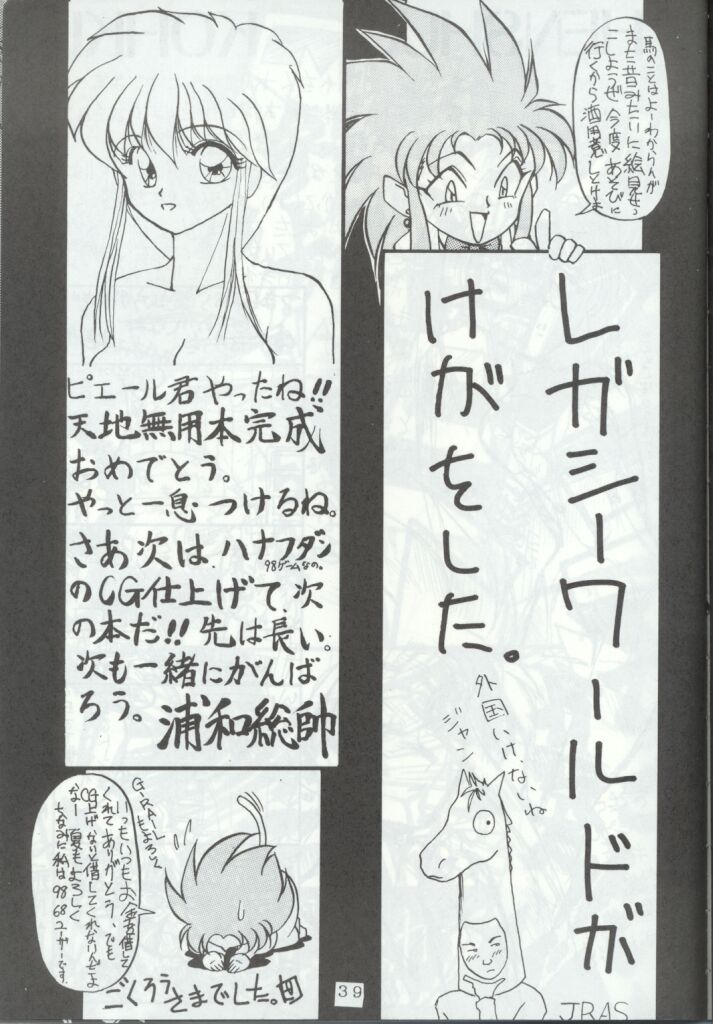 馬のことはよーわからんが
また昔みたいに絵見せっ
こしようぜ 今度あそびに
行くから酒用意しとけよ
レガシーワールドが
けがをした。
外国いけないね
ジャン
JRAS
ピエール君やったね!!
天地無用本完成
おめでとう。
やっと一息つけるね。
さあ次は、ハナフダン
98ゲームなの。
のCG仕上げて、次
の本だ!! 先は長い。
次も一緒にがんば
ろう。
浦和総帥
G-RAL
もよろしく
いつもいつもお金を借して
くれてありがとう、でも
CG上げないと借してくれないんだよ
なー 夏もよろしく
ちなみに私は98
68ユーザーです。
ごくろうさまでした。
39